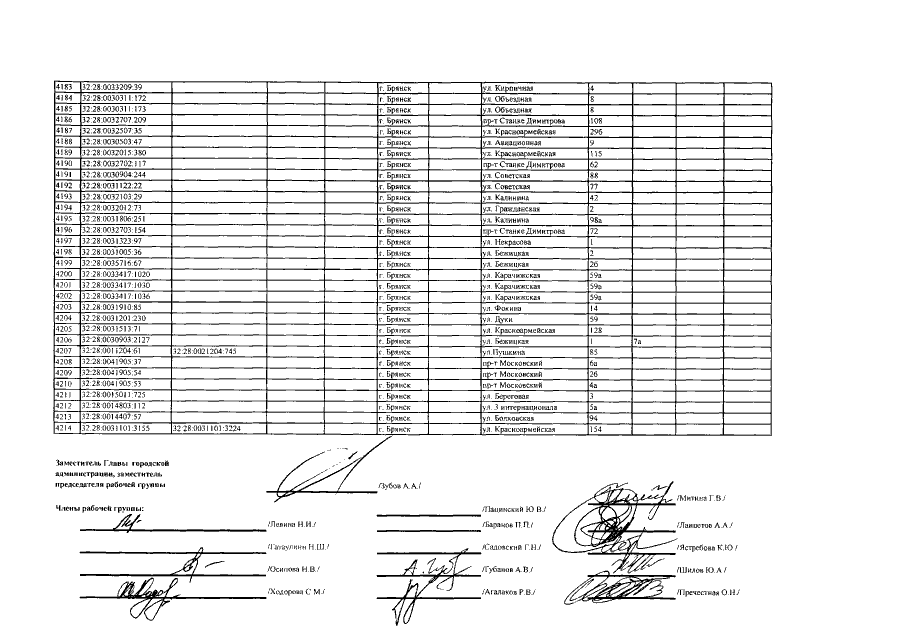 4183 32:28:0033209:39 г. Брянск ул. Кирпичная 4
4184 32:28:0030311:172 г. Брянск ул. Объездная 8
4185 32:28:0030311:173 г. Брянск ул. Объездная 8
4186 32:28:0032707:209 г. Брянск пр-т Станке Димитрова 108
4187 32:28:0032507:35 г. Брянск ул. Красноармейская 29б
4188 32:28:0030503:47 г. Брянск ул. Авиационная 9
4189 32:28:0032015:380 г. Брянск ул. Красноармейская 115
4190 32:28:0032702:117 г. Брянск пр-т Станке Димитрова 62
4191 32:28:0030904:244 г. Брянск ул. Советская 88
4192 32:28:0031122:22 г. Брянск ул. Советская 77
4193 32:28:0032103:29 г. Брянск ул. Калинина 42
4194 32:28:0032012:73 г. Брянск ул. Гражданская 2
4195 32:28:0031806:251 г. Брянск ул. Калинина 98а
4196 32:28:0032703:154 г. Брянск пр-т Станке Димитрова 72
4197 32:28:0031323:97 г. Брянск ул. Некрасова 1
4198 32:28:0031005:36 г. Брянск ул. Бежицкая 2
4199 32:28:0035716:67 г. Брянск ул. Бежицкая 26
4200 32:28:0033417:1020 г. Брянск ул. Карачижская 59а
4201 32:28:0033417:1030 г. Брянск ул. Карачижская 59а
4202 32:28:0033417:1036 г. Брянск ул. Карачижская 59а
4203 32:28:0031910:85 г. Брянск ул. Фокина 14
4204 32:28:0031201:230 г. Брянск ул. Дуки 59
4205 32:28:0031513:71 г. Брянск ул. Красноармейская 128
4206 32:28:0030903:2127 г. Брянск ул. Бежицкая 1 7а
4207 32:28:0011204:61 32:28:0021204:745 г. Брянск ул.Пушкина 85
4208 32:28:0041905:37 г. Брянск пр-т Московский 6а
4209 32:28:0041905:54 г. Брянск пр-т Московский 26
4210 32:28:0041905:53 г. Брянск пр-т Московский 4а
4211 32:28:0015011:725 г. Брянск ул. Береговая 3
4212 32:28:0014803:112 г. Брянск ул. 3 интернационала 5а
4213 32:28:0014407:57 г. Брянск ул. Болховская 94
4214 32:28:0031101:3155 32:28:0031101:3224 г. Брянск ул. Красноармейская 154
Заместитель Главы городской
администрации, заместитель
председателя рабочей группы /Зубов А.А./
Члены рабочей группы: /Пацинский Ю В./ /Митина Г.В./
/Левина Н.И./ /Баранов П.П./ /Лаицетов А.А./
/Гатаулин Н.Ш./ /Садовский Г.Н./ /Ястребова К.Ю /
/Осипова Н.В./ А. Губ /Губанов А.В./ /Шилов Ю.А /
/Ходорова С М./ /Агалаков Р.В./ /Пречестная О.Н./